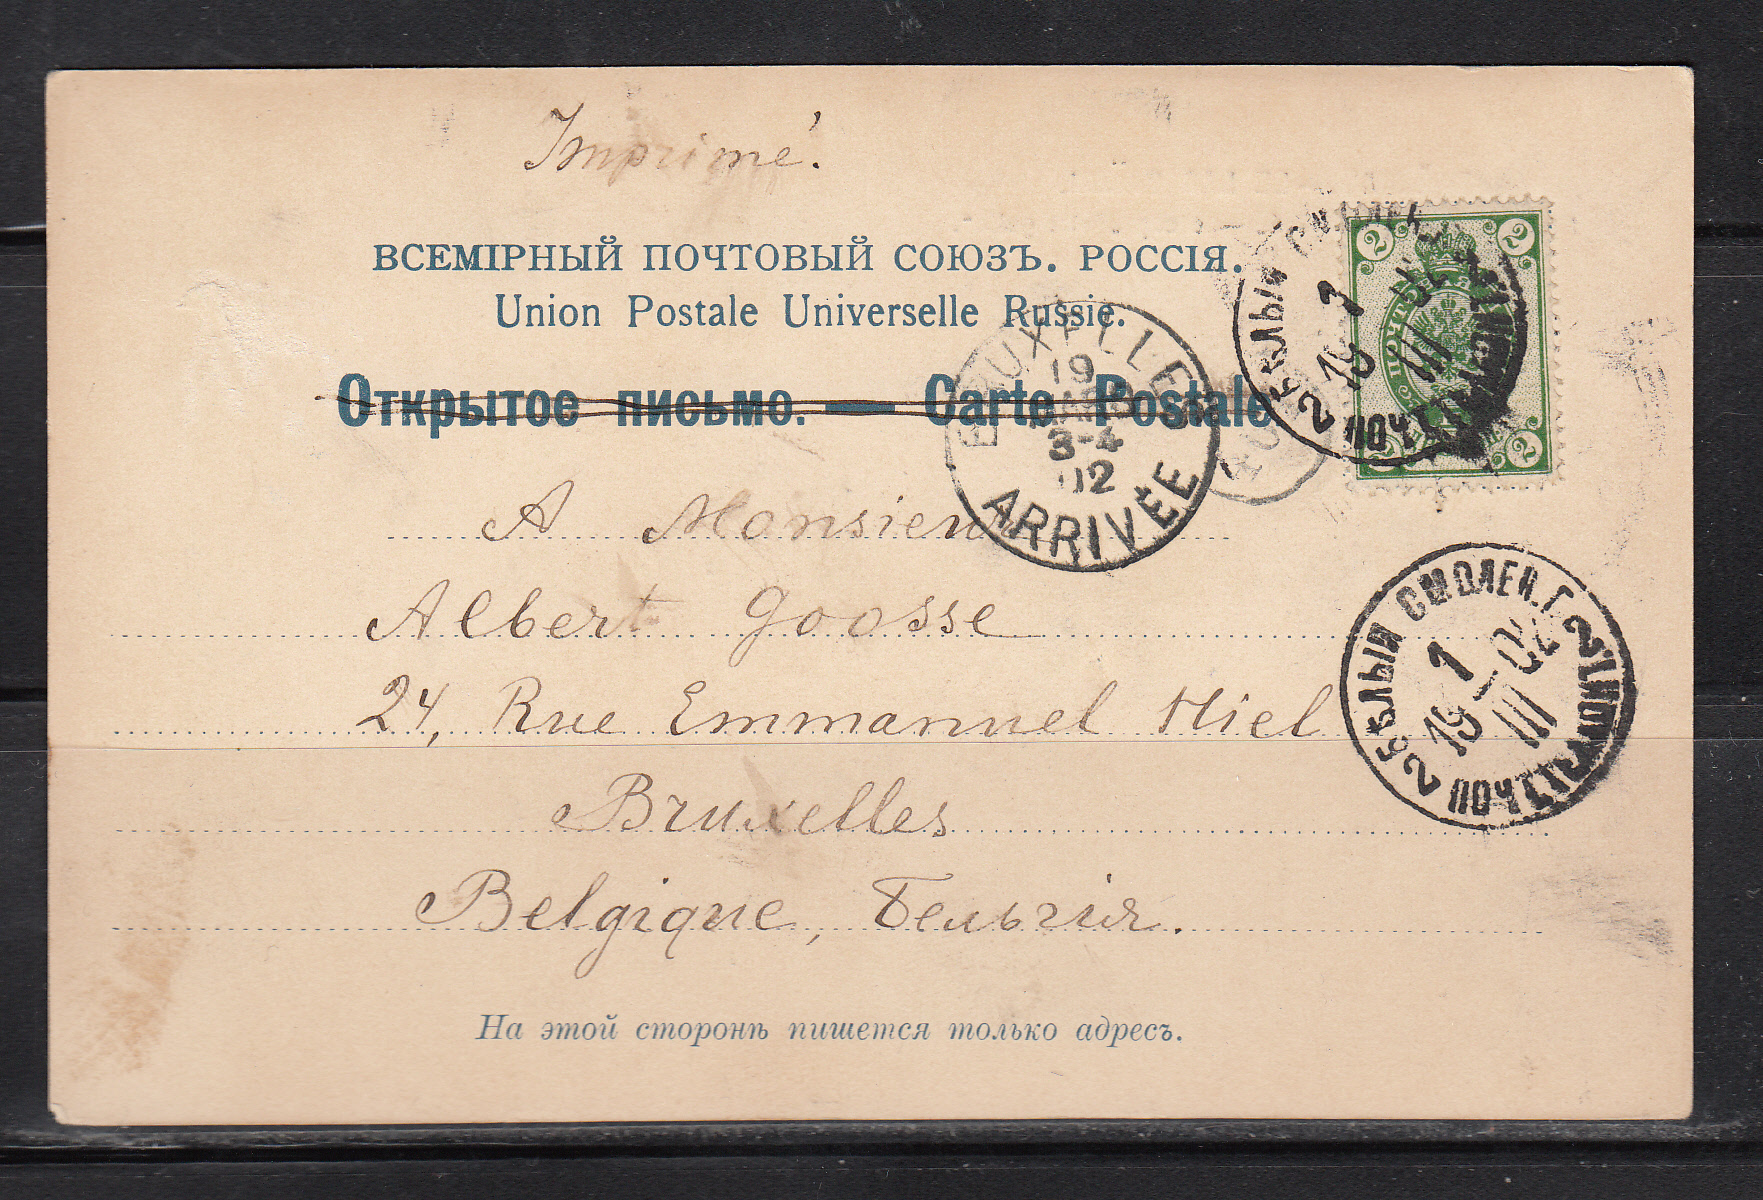 Imprimé.
ВСЕМІРНЫЙ ПОЧТОВЫЙ СОЮЗЪ. РОССІЯ.
Union Postale Universelle Russie.
Открытое письмо. — Carte Postale
BRUXELLES
19
3-4
02
ARRIVÉE
2 2
2 2
БѢЛЫЙ
ПОЧТ.
1
III
19
A Monsieur
Albert Goosse
24, Rue Emmanuel Hiel
Bruxelles
Belgique, Бельгія.
БѢЛЫЙ СМОЛЕН. Г.
1
III
19 02
2 ПОЧТ. ТЕЛ. КОНТ. 2
На этой сторонѣ пишется только адресъ.